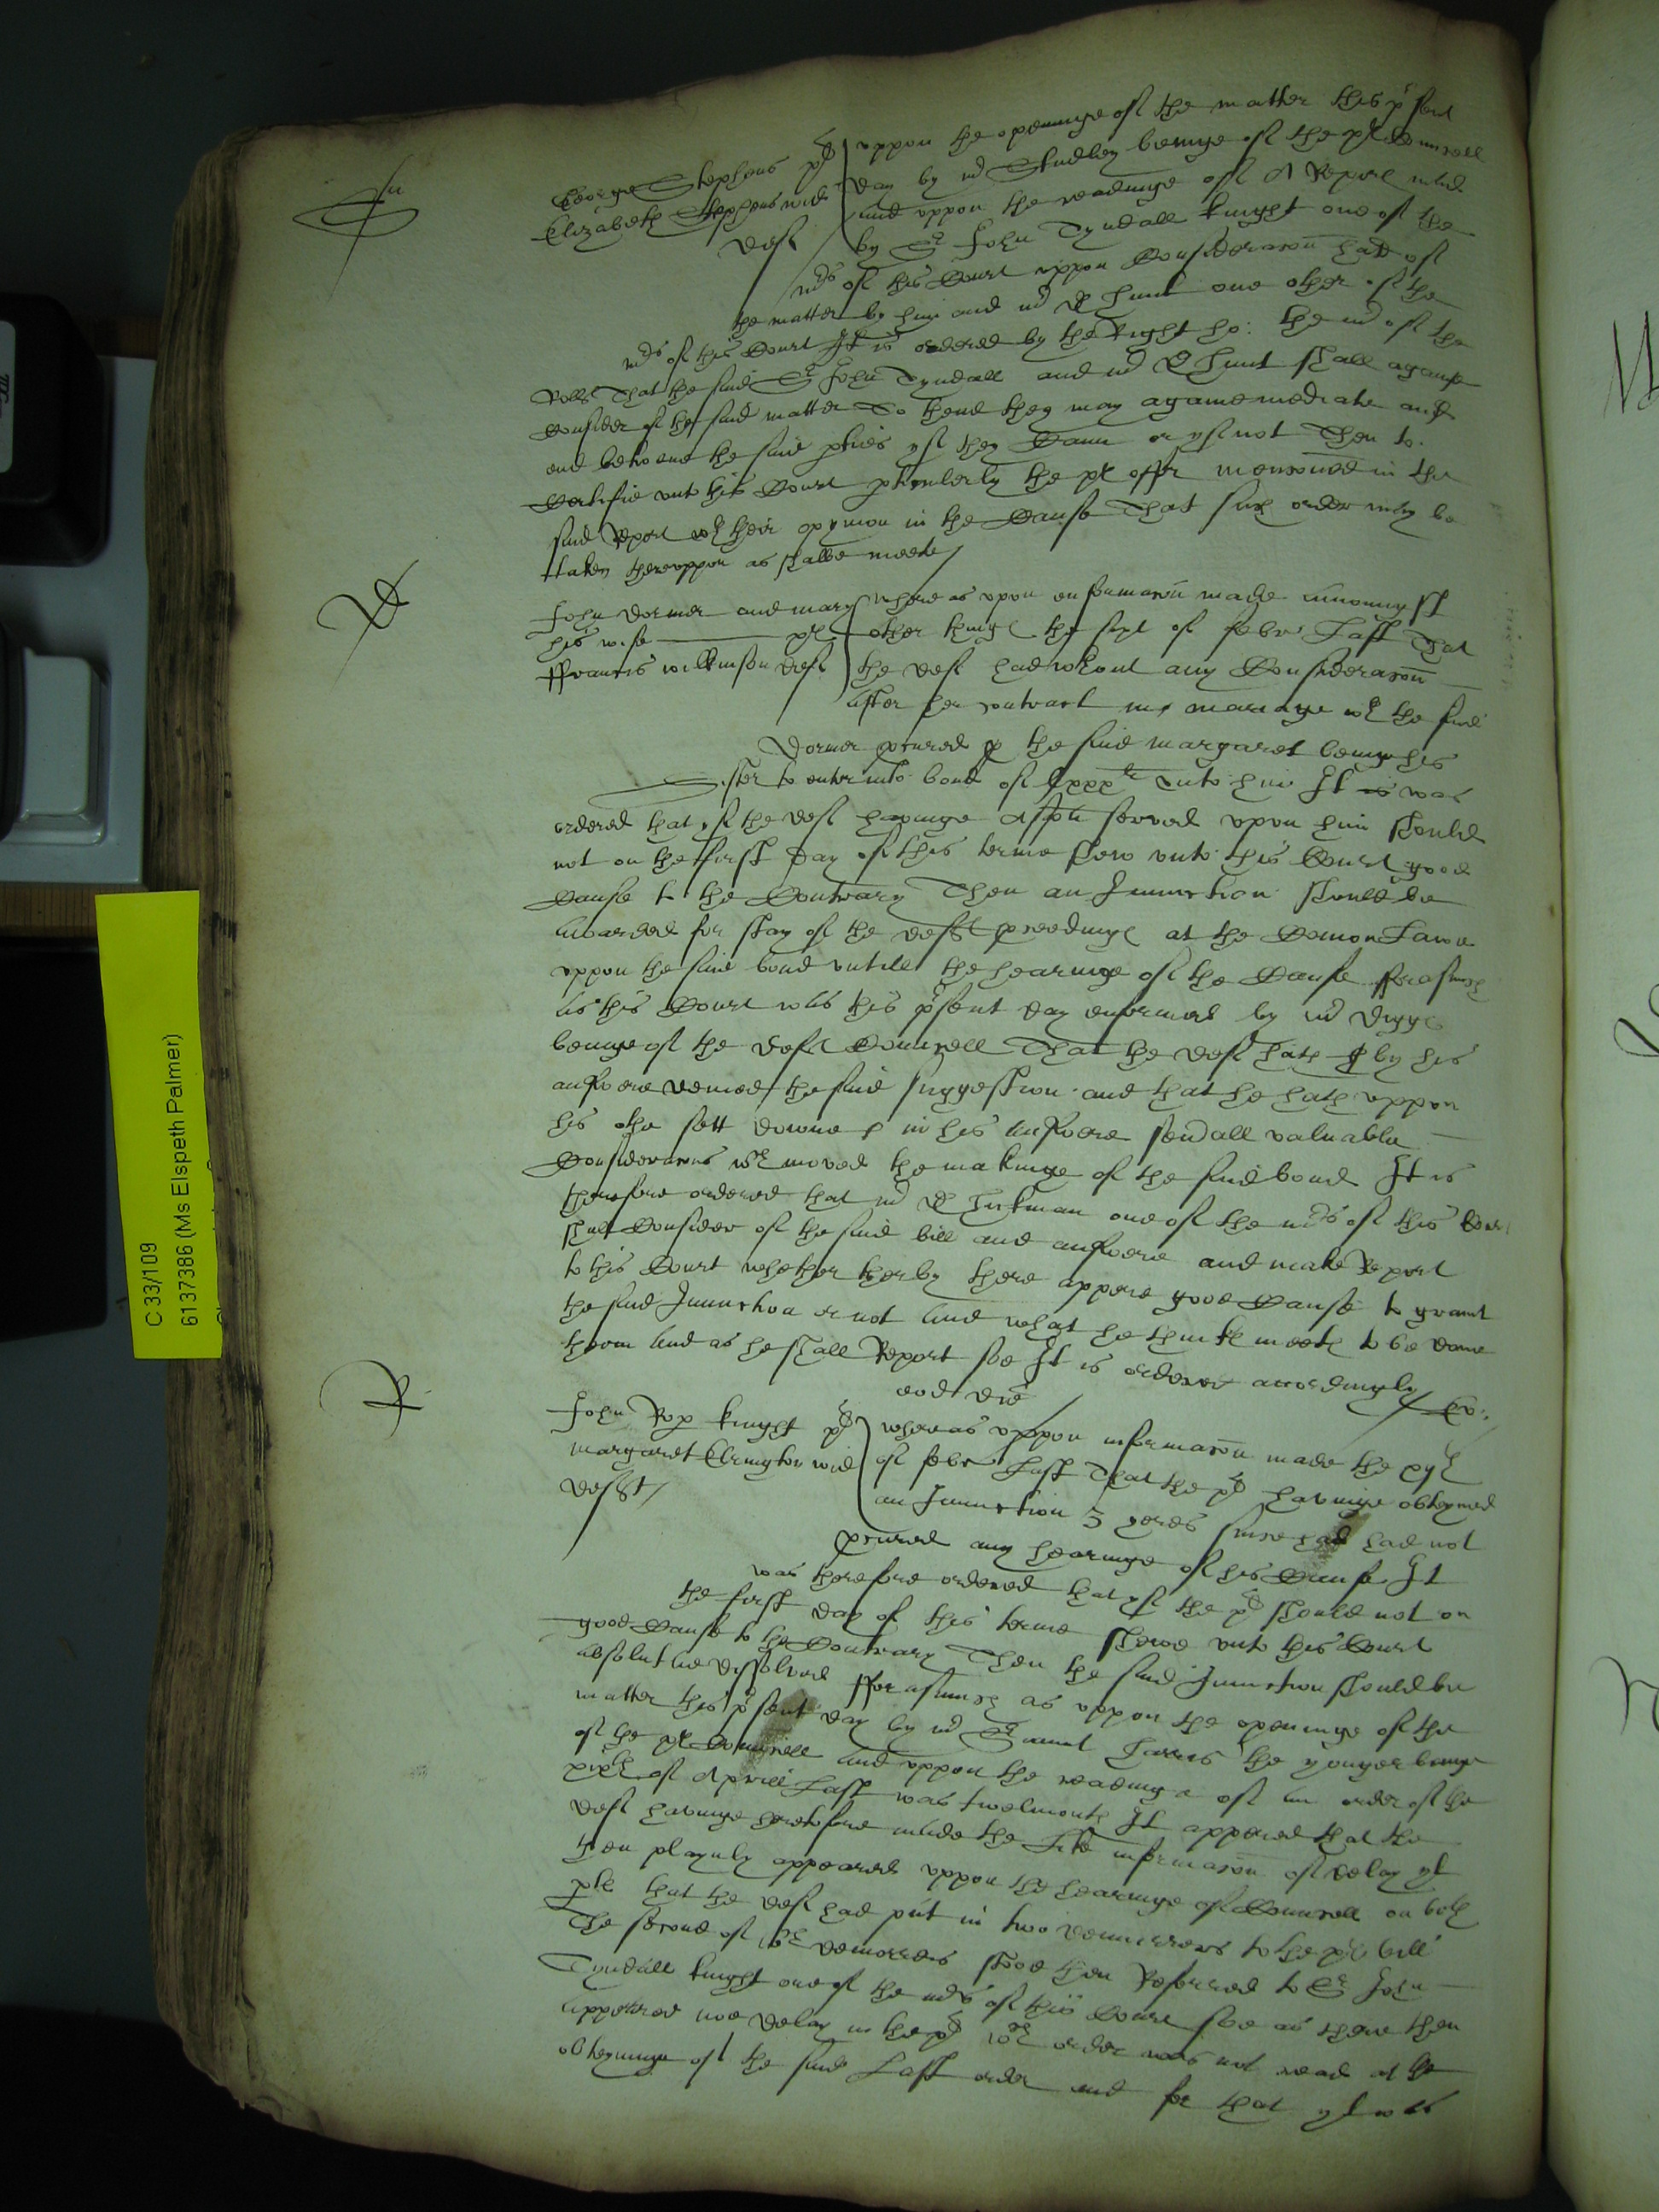 George Stephens pl
Elizabeth Stephens wid
def
uppon the openinge of the matter this psent
day by mr Studley beinge of the pl Councell
and uppon the readinge of A Report made
by Sr John Tyndall knight one of the
mrs of this Court uppon Consideracon had of
the matter by him and mr D Hunt one other of the
mrs of this Court It is ordered by the Right ho: the mr of the
Rolls That the said Sr John Tyndall and mr D Hunt shall againe
Consider of the said matter To thend they may againe mediate and
end betweene the said pties yf they Cann or yf not Then to
Certifie unto this Court pticulerly the pl offer menconed in the
said Report wth their opynion in the Cause That such order may be
taken thereuppon as shalbe meete /
John Dormer and mary
his wife pl
ffrancis wilkinson def
whereas upon enformacon made amongst
other things the of febr Last That
the def had wthout any Consideracon
after her contract in mariage wth the said
Dormer pcured the said margaret beinge his
Sister to enter into bond of unto him It is was
ordered that yf the def havinge A spa served upon him should
not on the first day of this terme shew unto this Court good
Cause to the Contrary Then an Iniunction should be
awarded for stay of the defts pceedings at the Comon Lawe
uppon the said bond untill the hearinge of the Cause fforasmuch
as this Court was this psent day enformed by mr Diggs
beinge of the defts Councell That the def hath by his
answere denied the said suggestion and that he hath uppon
his othe sett downe in his answere sevall valuable
Consideracons wch moved the makinge of the said bond It is
therefore ordered that mr D Hickman one of the mrs of this Court
shall Consider of the said bill and answere and make Report
to this Court whether therby there appere good Cause to graunt
the said Iniunction or not And what he thinkth meete to be done
therin And as he shall Report soe It is ordered accordingly /
eod die
John Rop knight pl
margaret Elrington wid
deft /
whereas uppon informacon made the
of febr Last That the pl havinge obteyned
an Iniunction 5 yeres since had had not
pcured any hearinge of his Cause It
was therefore ordered that yf the pl should not on
the first day of this terme shewe unto this Court
good Cause to the Contrary Then the said Iniunction should be
absolutlie dissolved fforasmuch as uppon the openinge of the
matter this psent day by mr Harris the yonger beinge
of the pl Councell and uppon the readinge of an order of the
xixth of Aprill Last was twelmonth It appered that the
def havinge heretofore made the like informacon of delay yt
then playnly appeared uppon the hearinge of Councell on both
pts that the def had put in two demurrers to the pl bill
The second of wch demurrers stood then Referred to Sr John
Tyndall knight one of the mrs of this Court soe as there then
appered noe delay in the pl wch order was not read at the
obteyninge of the said Last order and for that yt was
C 33/109
6137386 (Ms Elspeth Palmer)